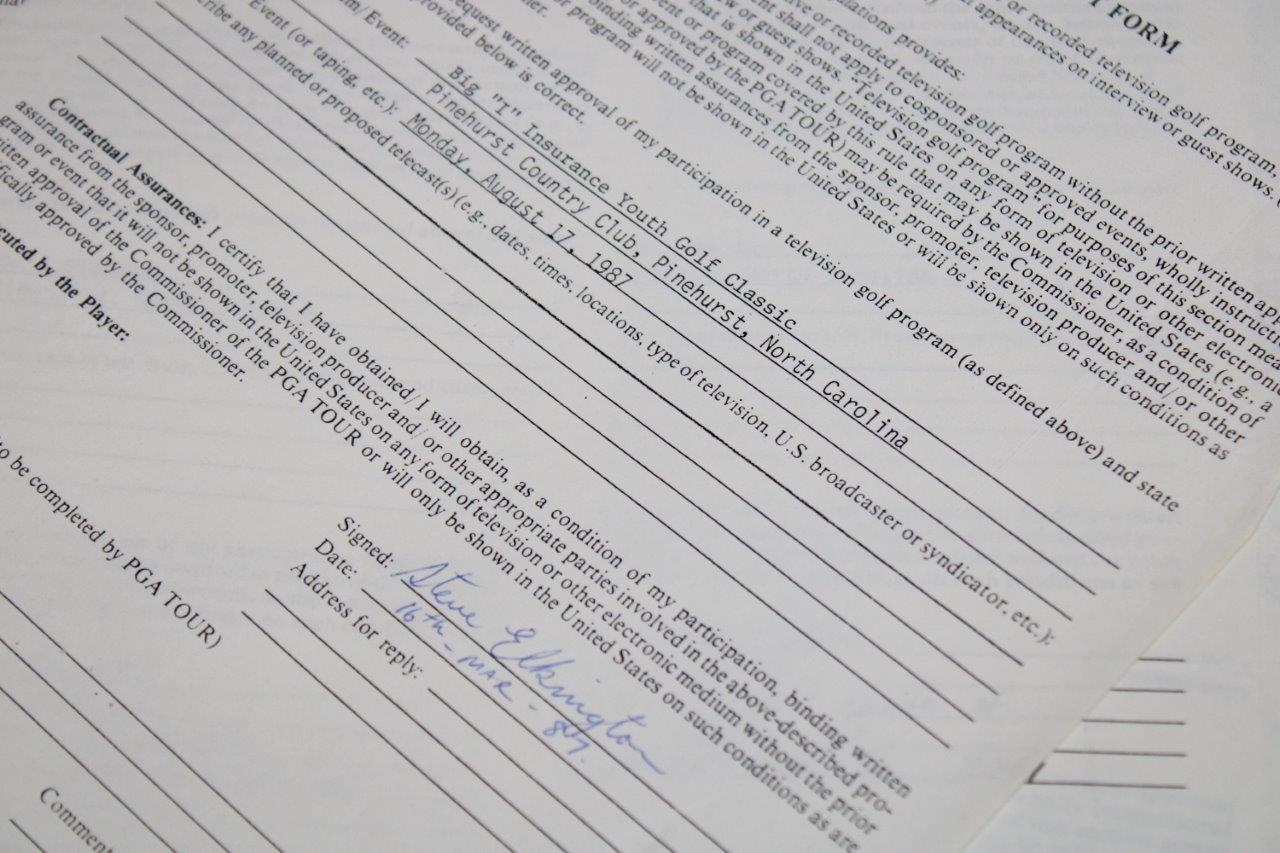 T FORM
or recorded television golf program,
appearances on interview or guest shows.
ulations provides:
ve or recorded television golf program without the prior written app
ent shall not apply to cosponsored or approved events, wholly instruct
w or guest shows. "Television golf program" for purposes of this section mea
that is shown in the United States on any form of television or other electroni
ent or program covered by this rule that may be shown in the United States (e.g., a
or approved by the PGA TOUR) may be required by the Commissioner, as a condition of
binding written assurances from the sponsor, promoter, television producer and/or other
or program will not be shown in the United States or will be shown only on such conditions as
ner.
request written approval of my participation in a television golf program (as defined above) and state
provided below is correct.
m/Event: Big "I" Insurance Youth Golf Classic
Pinehurst Country Club, Pinehurst, North Carolina
Event (or taping, etc.): Monday, August 17, 1987
cribe any planned or proposed telecast(s) (e.g., dates, times, locations, type of television, U.S. broadcaster or syndicator, etc.):
Contractual Assurances: I certify that I have obtained/I will obtain, as a condition of my participation, binding written
assurance from the sponsor, promoter, television producer and/or other appropriate parties involved in the above-described pro-
gram or event that it will not be shown in the United States on any form of television or other electronic medium without the prior
written approval of the Commissioner of the PGA TOUR or will only be shown in the United States on such conditions as are
ifically approved by the Commissioner.
cuted by the Player:
Signed: Steve Elkington
Date: 16th-MAR-87.
Address for reply:
to be completed by PGA TOUR)
Comment